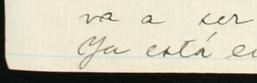 va a ser
Ya está e